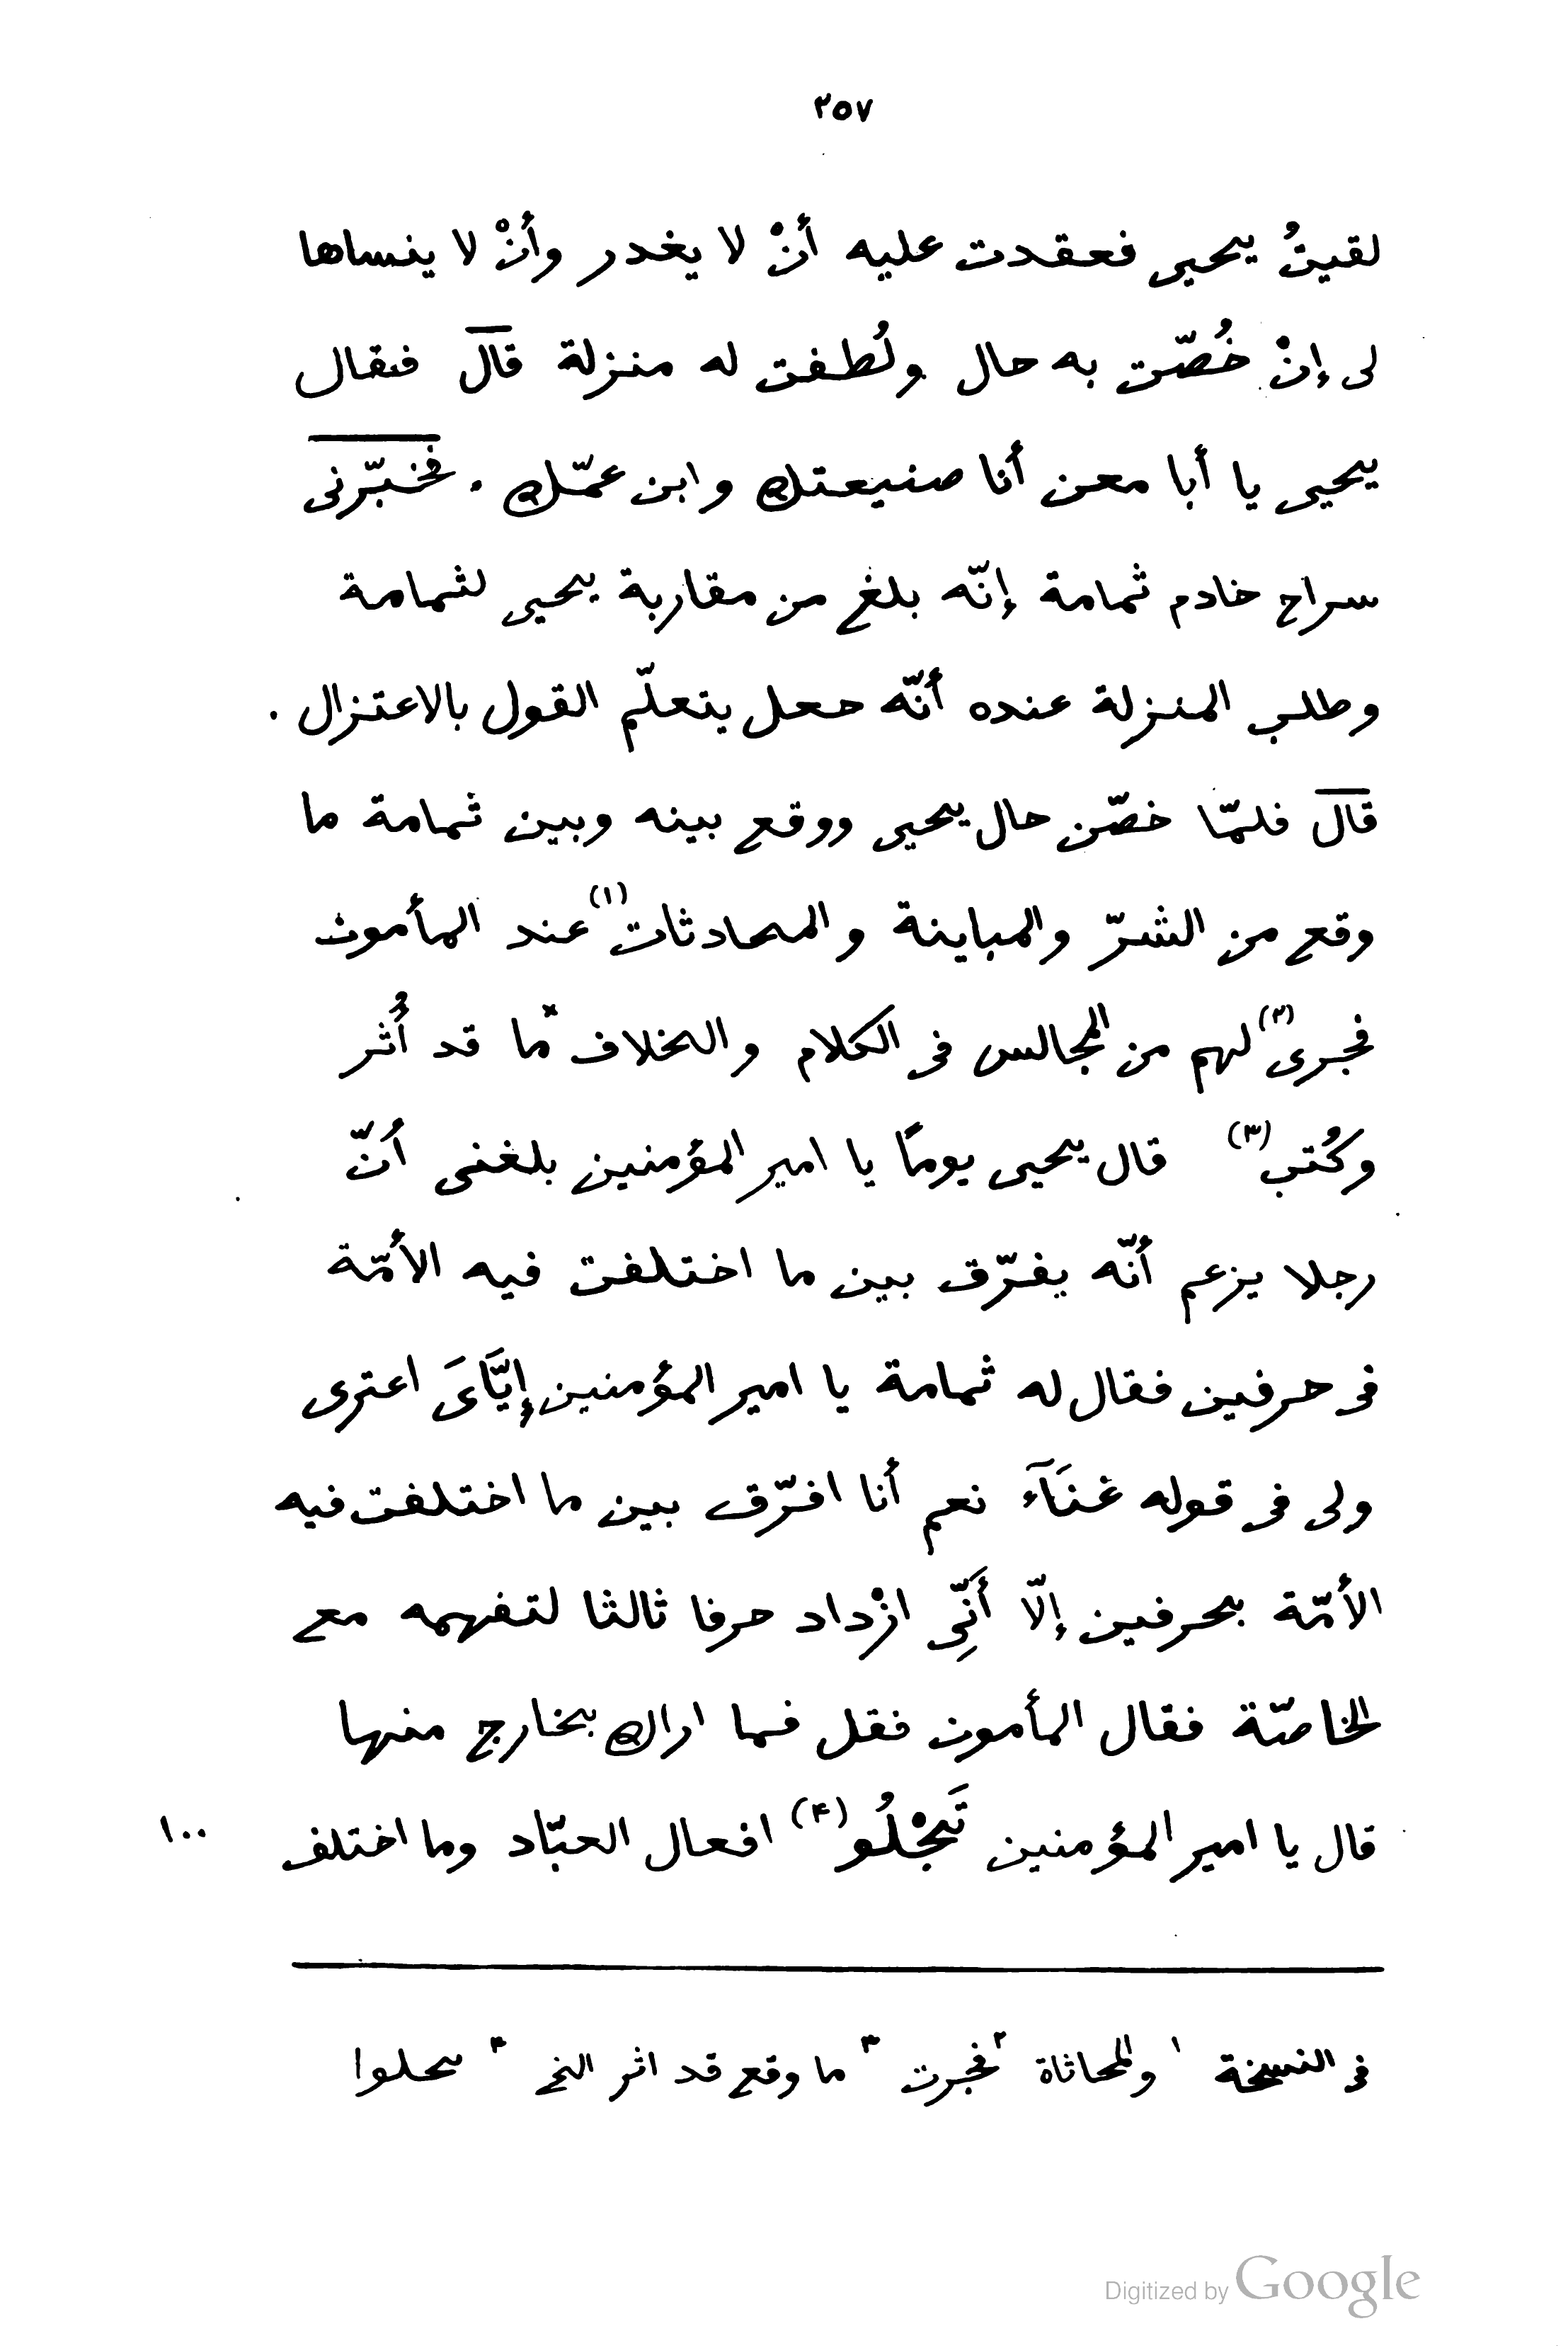 ٢٥٧
لقيتُ يحيى فعقدت عليه أنْ لا يغدر وأنْ لا ينساها
لى إنْ خُصّت به حال ولُطفت له منزلة قال فقال
يحيى يا أبا معن أنا صنيعتك وابن عمّك . فخبّرنى
سراج خادم ثمامة إنّه بلغ من مقاربة يحيى لثمامة
وطلب المنزلة عنده أنّه جعل يتعلّم القول بالاعتزال .
قال فلمّا خصّت حال يحيى ووقع بينه وبين ثمامة ما
وقع من الشرّ والمباينة والمحادثات (١) عند المأمون
فجرى (٢) لهم من المجالس فى الكلام والخلاف ما قد أُثر
وكُتب (٣) قال يحيى يومًا يا امير المؤمنين بلغنى أنّ
رجلا يزعم أنّه يفرّق بين ما اختلفت فيه الأمّة
فى حرفين فقال له ثمامة يا امير المؤمنين إيّاىَ اعترى
ولى فى قوله غنَآء نعم أنا افرّق بين ما اختلفت فيه
الأمّة بحرفين إلّا أَنِّى ازْداد حرفا ثالثا لتفهمه مع
الخاصّة فقال المأمون فقل فما اراك بخارج منها
قال يا امير المؤمنين تَجْلُو (٤) افعال العبّاد وما اختلف
١٠٠
فى النسخة ١ والمحاثاة ٢ فجرت ٣ ما وقع قد اثر الخ ٤ سحلوا
Digitized by Google